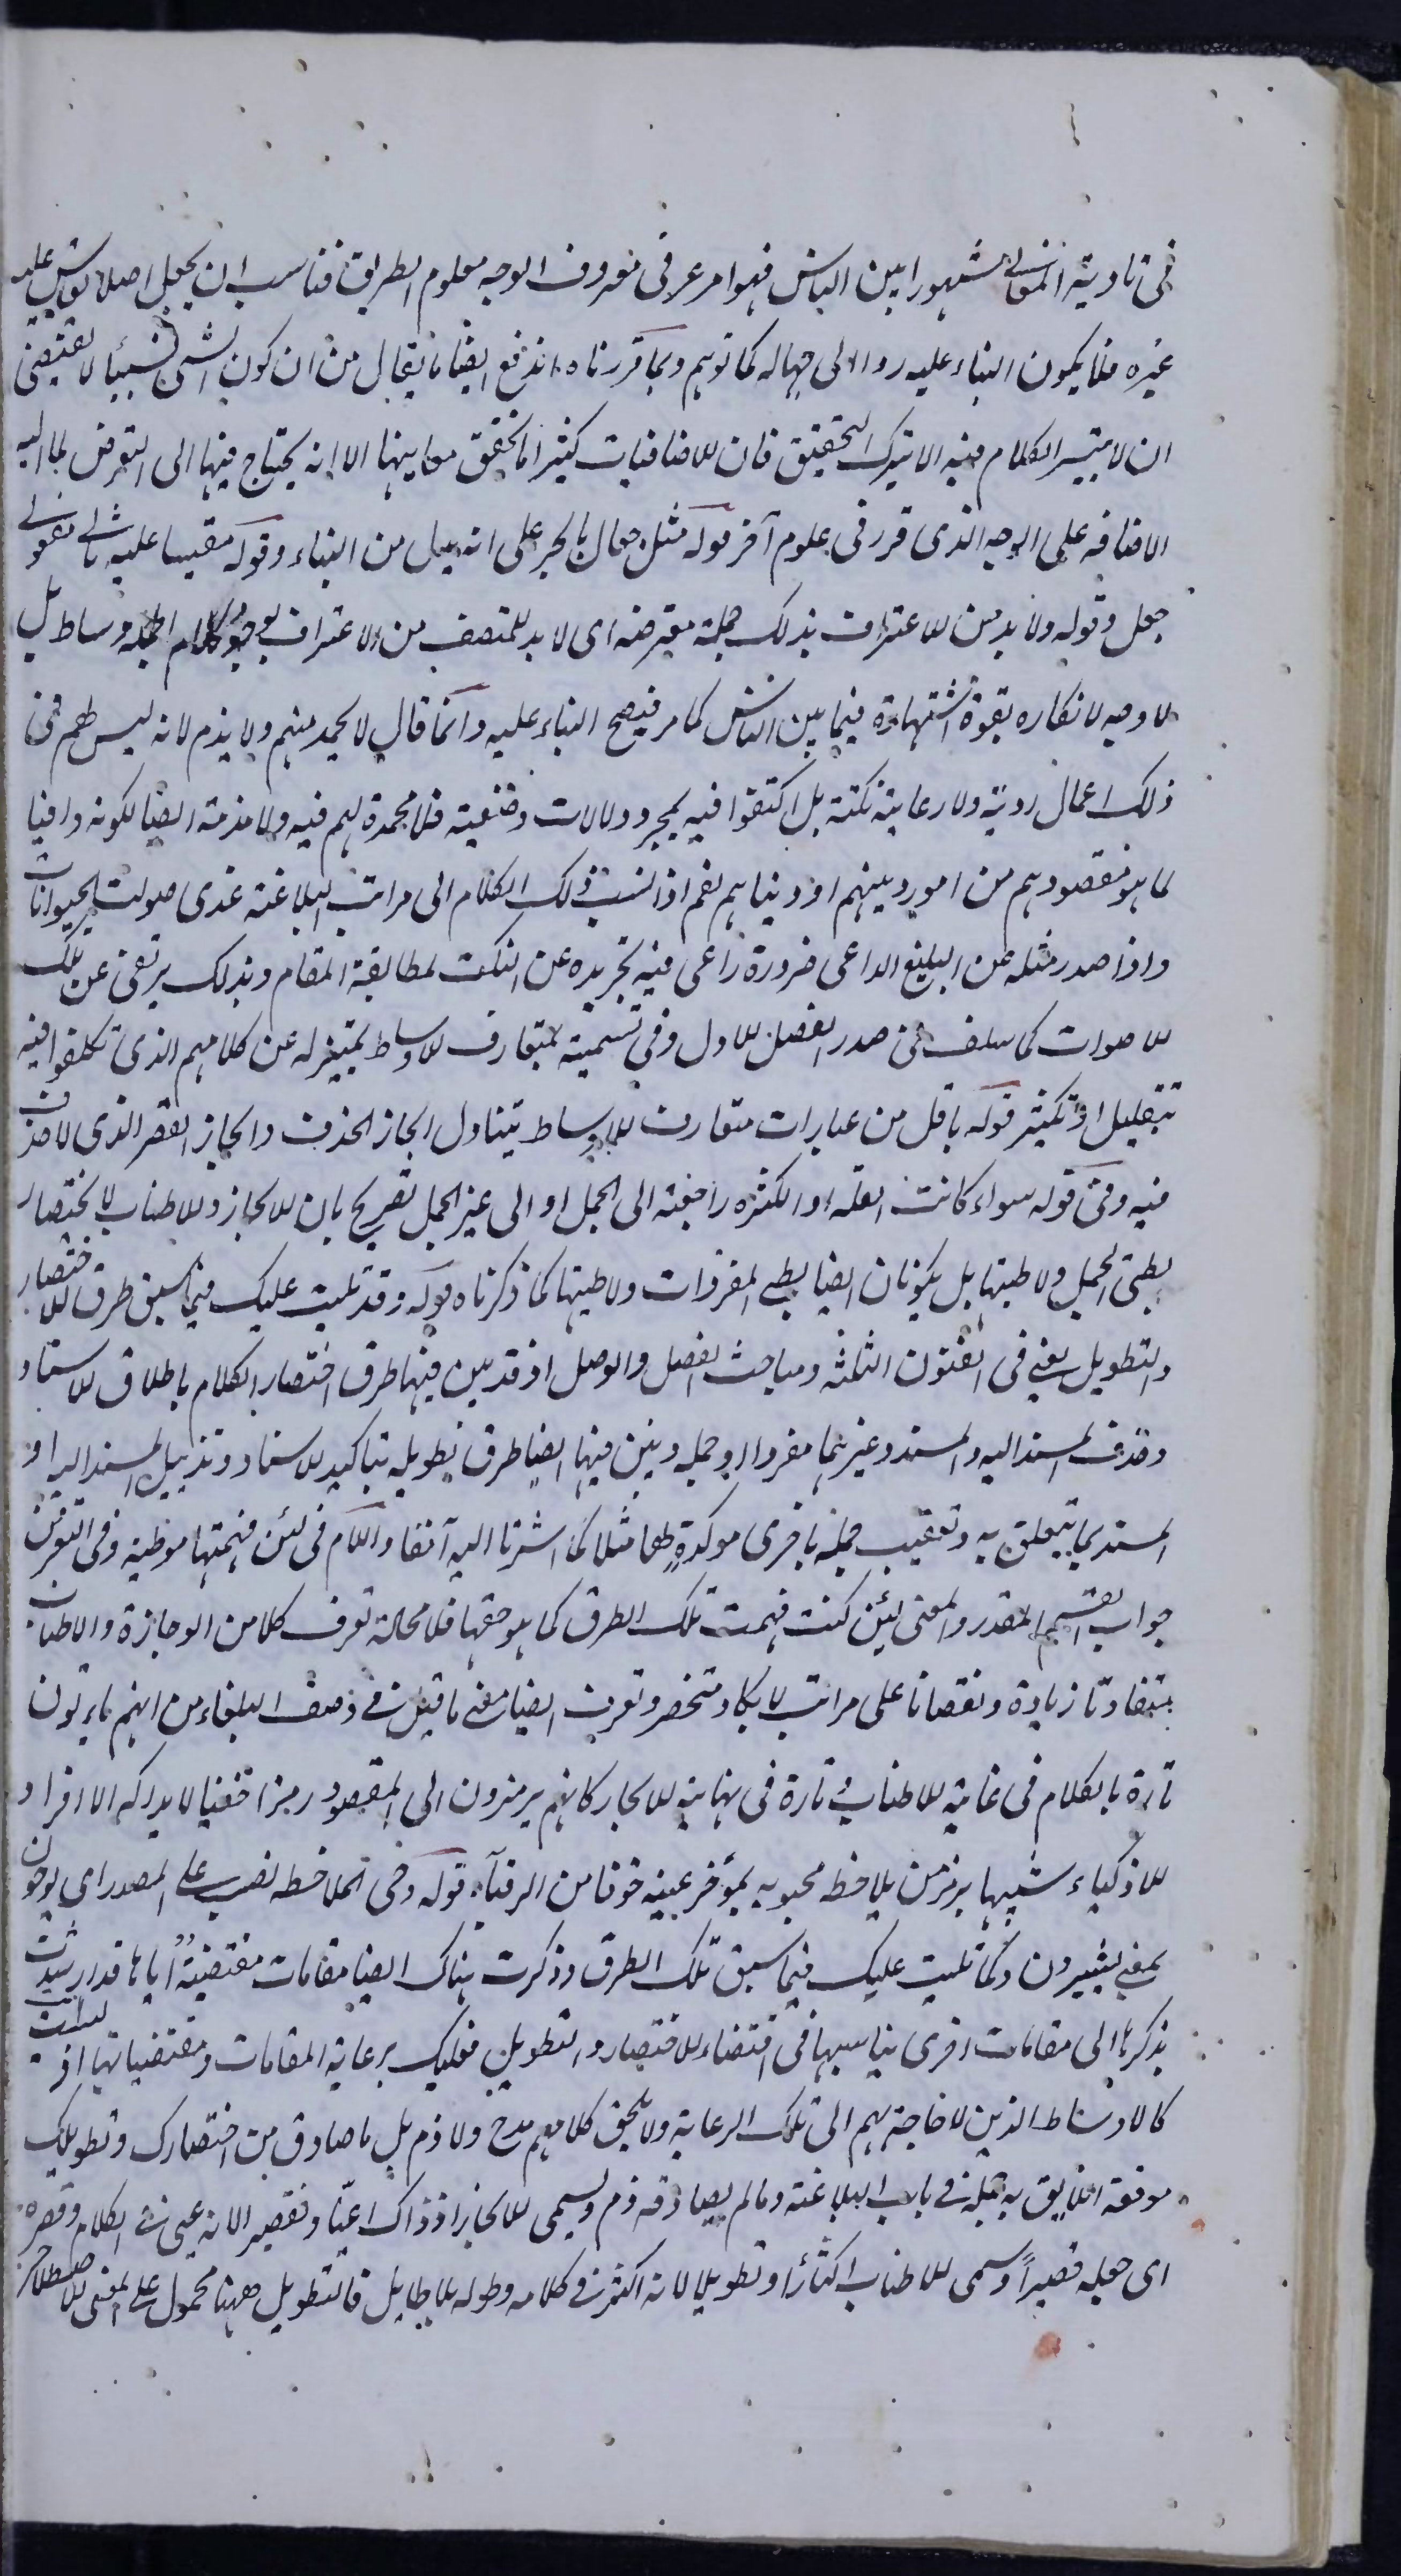 فى تادية المعانى مشهورا بين الناس فهو امر عرفى معروف الوجه معلوم الطريق فناسب ان يجعل اصلا يقاس عليه
غيره فلا يكون البناء عليه ردا الى جهالة كما توهم وبما قررناه اندفع ايضا ما يقال من ان كون الشئ نسبيا لا يقتضى
ان لا يتيسر الكلام فيه الا بترك التحقيق فان للاضافيات كثيرا ما تحقق معانيها الا انه يحتاج فيها الى التعرض لما اليه
الاضافه على الوجه الذى قرر فى علوم آخر قوله مثل جعال بالجر على انه بدل من البناء وقوله مقيسا عليه ثانى مفعولى
جعل وقوله ولا بد من الاعتراف بذلك جملة معترضة اى لا بد للمتصف من الاعتراف بوجود كلام الاوساط بل
لا وجه لانكاره بقوة اشتهاره فيما بين الناس كما مر فيصح البناء عليه وانما قال لا يحمد منهم ولا يذم لانه ليس لهم فى
ذلك اعمال روية ولا رعاية نكتة بل اكتفوا فيه بمجرد دلالات وضعية فلا محمدة لهم فيه ولا مذمة ايضا لكونه وافيا
لما هو مقصودهم من امور دينهم او دنياهم نعم اذا نسب ذلك الكلام الى مراتب البلاغة عدى صوت الحيوانات
واذا صدر مثله عن البليغ الداعى ضرورة راعى فيه تجريده عن النكت لمطابقة المقام وبذلك يرتقى عن تلك
الاصوات كما سلف فى صدر الفصل الاول وفى تسمية بمتعارف الاوساط تمييز له عن كلامهم الذى تكلفوا فيه
بتقليل او تكثير قوله باقل من عبارات متعارف الاوساط يتناول ايجاز الحذف وايجاز القصر الذى لا حذف
فيه وفى قوله سواء كانت القلة او الكثرة راجعة الى الجمل او الى غير الجمل تصريح بان الايجاز والاطناب لا يختصان
بطى الجمل ولا طيها بل يكونان ايضا بطى المفردات ولا طيها كما ذكرناه قوله وقد تليت عليك فيما سبق طرق الاختصار
والتطويل يعنى فى الفنون الثلثة ومباحث الفصل والوصل اذ قد بين فيها طرق اختصار الكلام باطلاق الاسناد
وحذف المسند اليه والمسند وغيرهما مفردا او جملة وبين فيها ايضا طرق تطويله بتاكيد الاسناد وتذييل المسند اليه او
المسند بما يتعلق به وتعقيب جملة باخرى موكدة لها مثلا كما اشرنا اليه آنفا واللام فى لئن فهمتها موطئة وفى التعرض
جواب القسم المقدر والمعنى لئن كنت فهمت تلك الطرق كما هو حقها فلا محالة تعرف كلا من الوجازة والاطناب
بتفاوتا زيادة ونقصانا على مراتب لا يكاد تنحصر وتعرف ايضا معنى ما قيل فى وصف البلغاء من انهم ياتون
تارة بالكلام فى غاية الاطناب وتارة فى نهاية الايجاز كانهم يرمزون الى المقصود رمزا خفيا لا يدركه الا افراد
الاذكياء شبيها برمز من يلاحظ محبوبه بمؤخر عينه خوفا من الرقباء قوله وحى الملاحظ نصب على المصدر اى يوحون
بمعنى يشيرون وكما تليت عليك فيما سبق تلك الطرق وذكرت هناك ايضا مقامات مقتضية اياها قد ارشدت
بذكرها الى مقامات اخرى يناسبها فى اقتضاء الاختصار والتطويل فعليك برعاية المقامات ومقتضياتها اذ لست
كالاوساط الذين لا حاجة بهم الى تلك الرعاية ولا يلحق كلامهم مدح ولا ذم بل ما صادق من اختصارك وتطويلك
موقعه اللايق به قبله فى باب البلاغة وما لم يصادقه ذم ويسمى الايجاز اذ ذاك اعيا وتقصيرا لانه عى فى الكلام وقصره
اى جعله قصيرا وسمى الاطناب اكثارا وتطويلا لانه اكثر فى كلامه وطوله بلا طايل فالتطويل ههنا محمول على المعنى الاصطلاحى